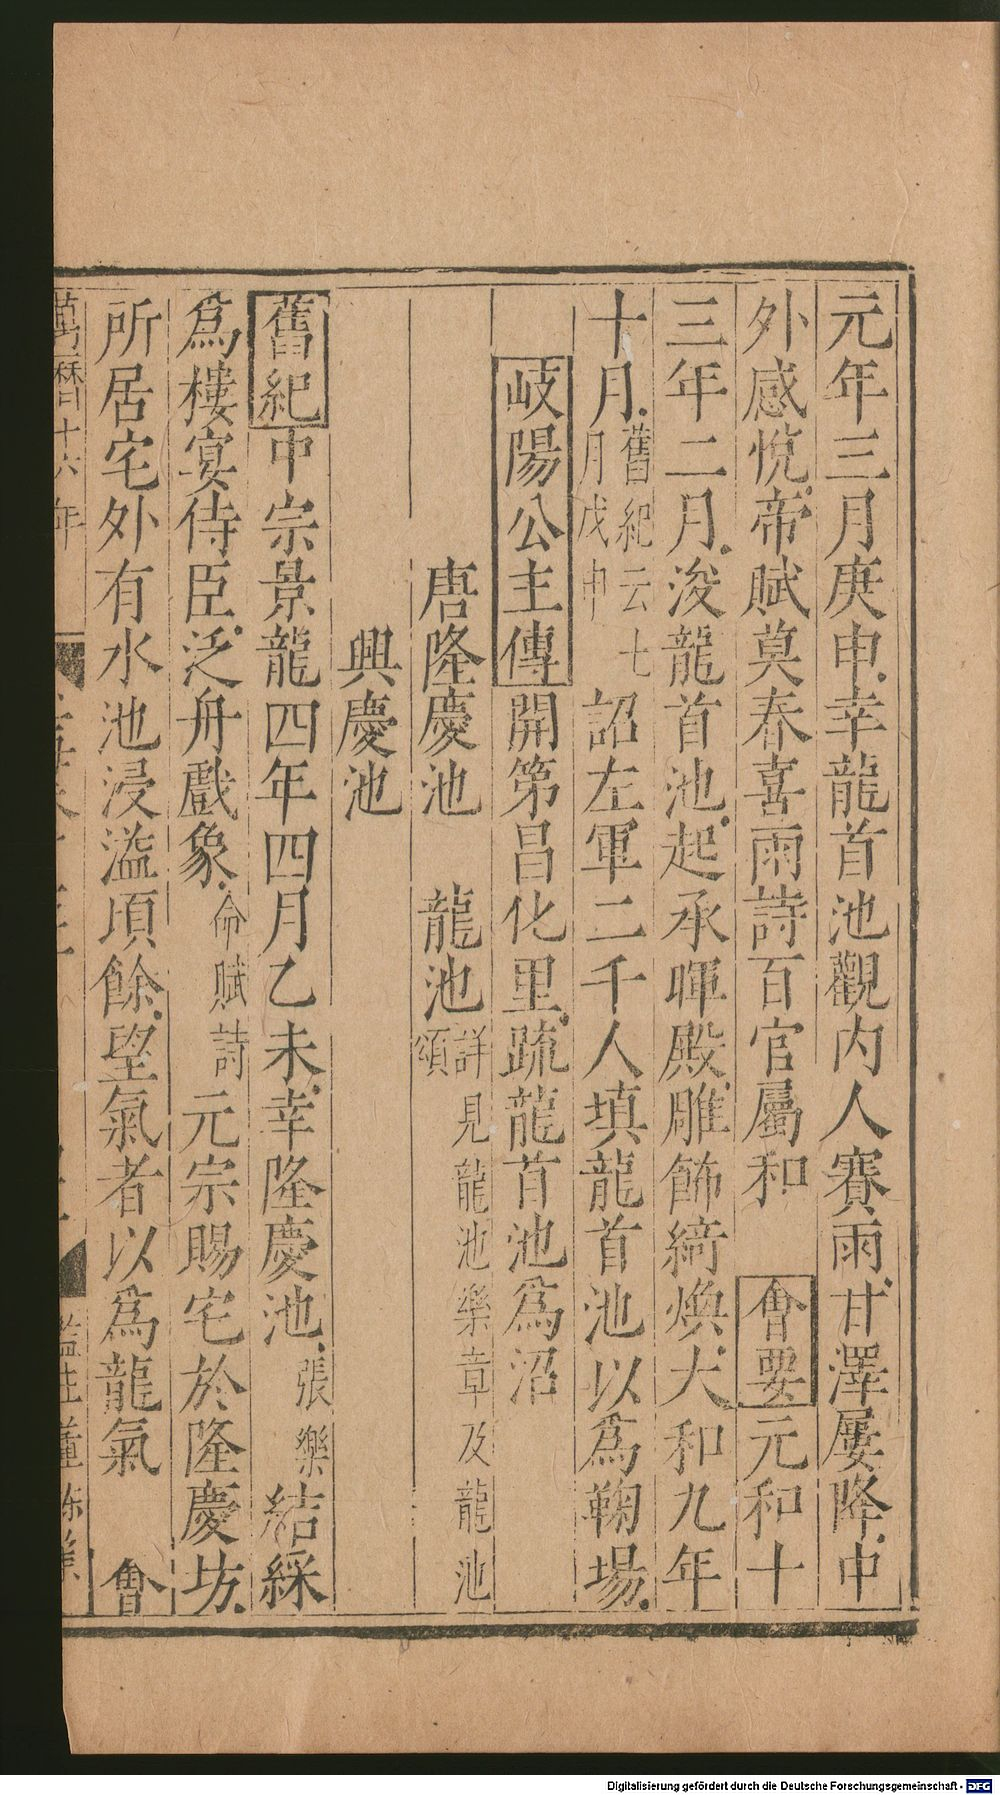 元年三月庚申幸龍首池觀内人賽雨甘澤屢降中
外感悅帝賦莫春喜雨詩百官屬和　會要元和十
三年二月浚龍首池起承暉殿雕飾綺煥大和九年
十月舊紀云七月戊申詔左軍二千人填龍首池以為鞠場
岐陽公主傳開第昌化里疏龍首池為沼
唐隆慶池　龍池詳見龍池樂章及龍池頌
興慶池
舊紀中宗景龍四年四月乙未幸隆慶池張樂結綵
為樓宴侍臣泛舟戲象命賦詩元宗賜宅於隆慶坊
所居宅外有水池浸溢頃餘望氣者以為龍氣　會
萬曆十六年
Digitalisierung gefördert durch die Deutsche Forschungsgemeinschaft - DFG